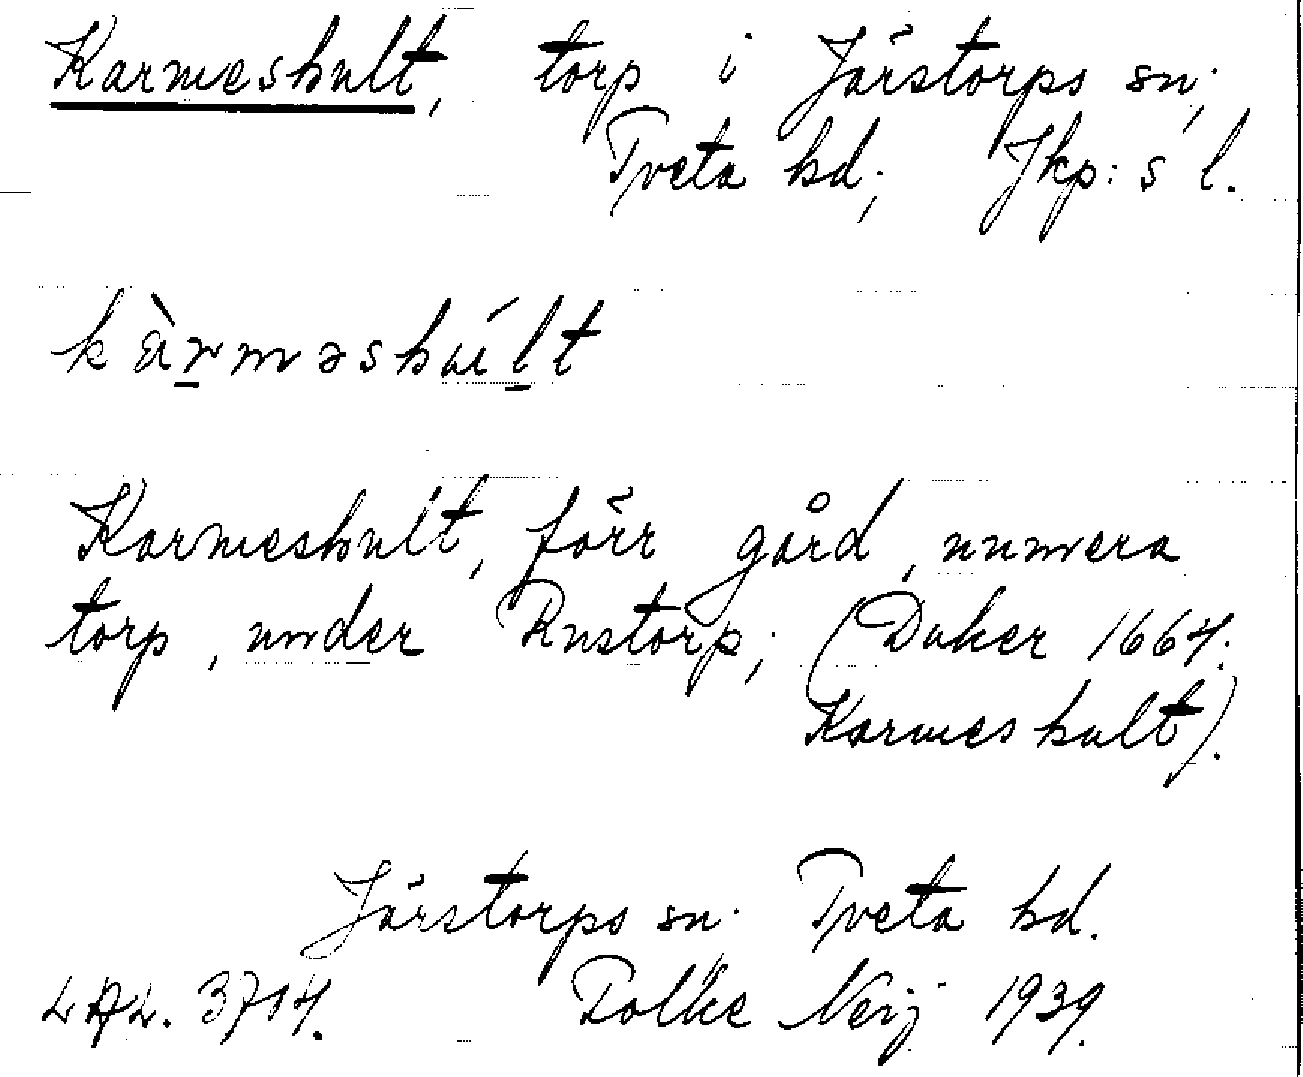 Karmeshult, torp i Järstorps sn;
Tveta hd; Jkp: s l.
kàrməshúlt
Karmeshult, förr gård, numera
torp, under Rustorp; (Duker 1664:
Karmeshult).
Järstorps sn. Tveta hd.
LAL. 3704. Folke Neij 1939.